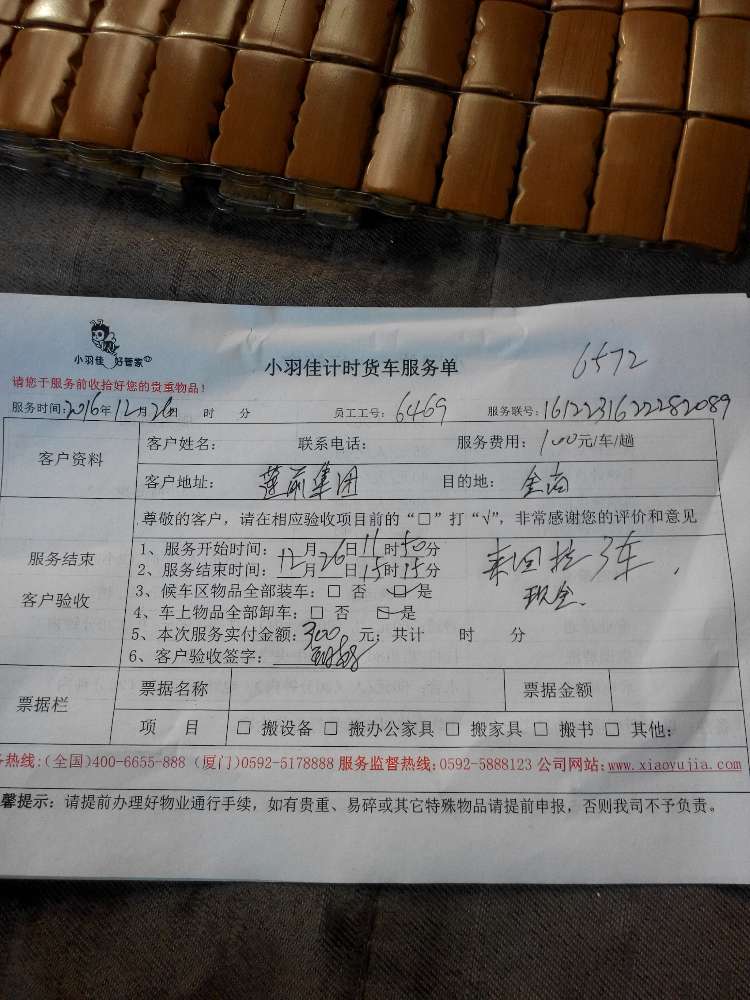 小羽佳 好管家
小羽佳计时货车服务单 6572
请您于服务前收拾好您的贵重物品！
服务时间：2016年12月26日 时 分 员工工号：6469 服务联号：1612231622282089
客户资料
客户姓名： 联系电话： 服务费用：100元/车/趟
客户地址：莲前集团 目的地：
服务结束
客户验收
尊敬的客户，请在相应验收项目前的“□”打“√”，非常感谢您的评价和意见
1、服务开始时间：12月26日11时50分
2、服务结束时间： 月 日15时15分
3、候车区物品全部装车：□ 否 □ 是
4、车上物品全部卸车：□ 否 □ 是
来回拉3车，
现金.
5、本次服务实付金额：300元；共计 时 分
6、客户验收签字：
票据栏
票据名称 票据金额
项 目 □ 搬设备 □ 搬办公家具 □ 搬家具 □ 搬书 □ 其他：
热线：(全国)400-6655-888 (厦门)0592-5178888 服务监督热线：0592-5888123 公司网站：www.xiaoyujia.com
馨提示：请提前办理好物业通行手续，如有贵重、易碎或其它特殊物品请提前申报，否则我司不予负责。